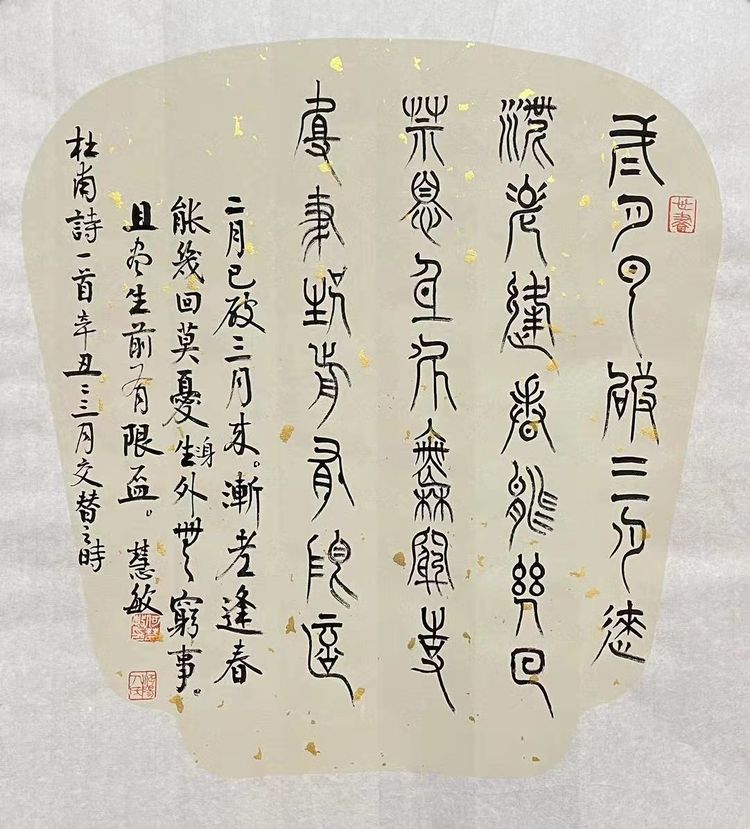 弍月已破三月逨
漸老逢春能幾回
莫思身外無窮事
且盡生前有限盃
二月已破三月來。漸老逢春
能幾回莫憂生身外無窮事。
且尽生前有限盃。慧敏
杜甫詩一首辛丑二三月交替之時